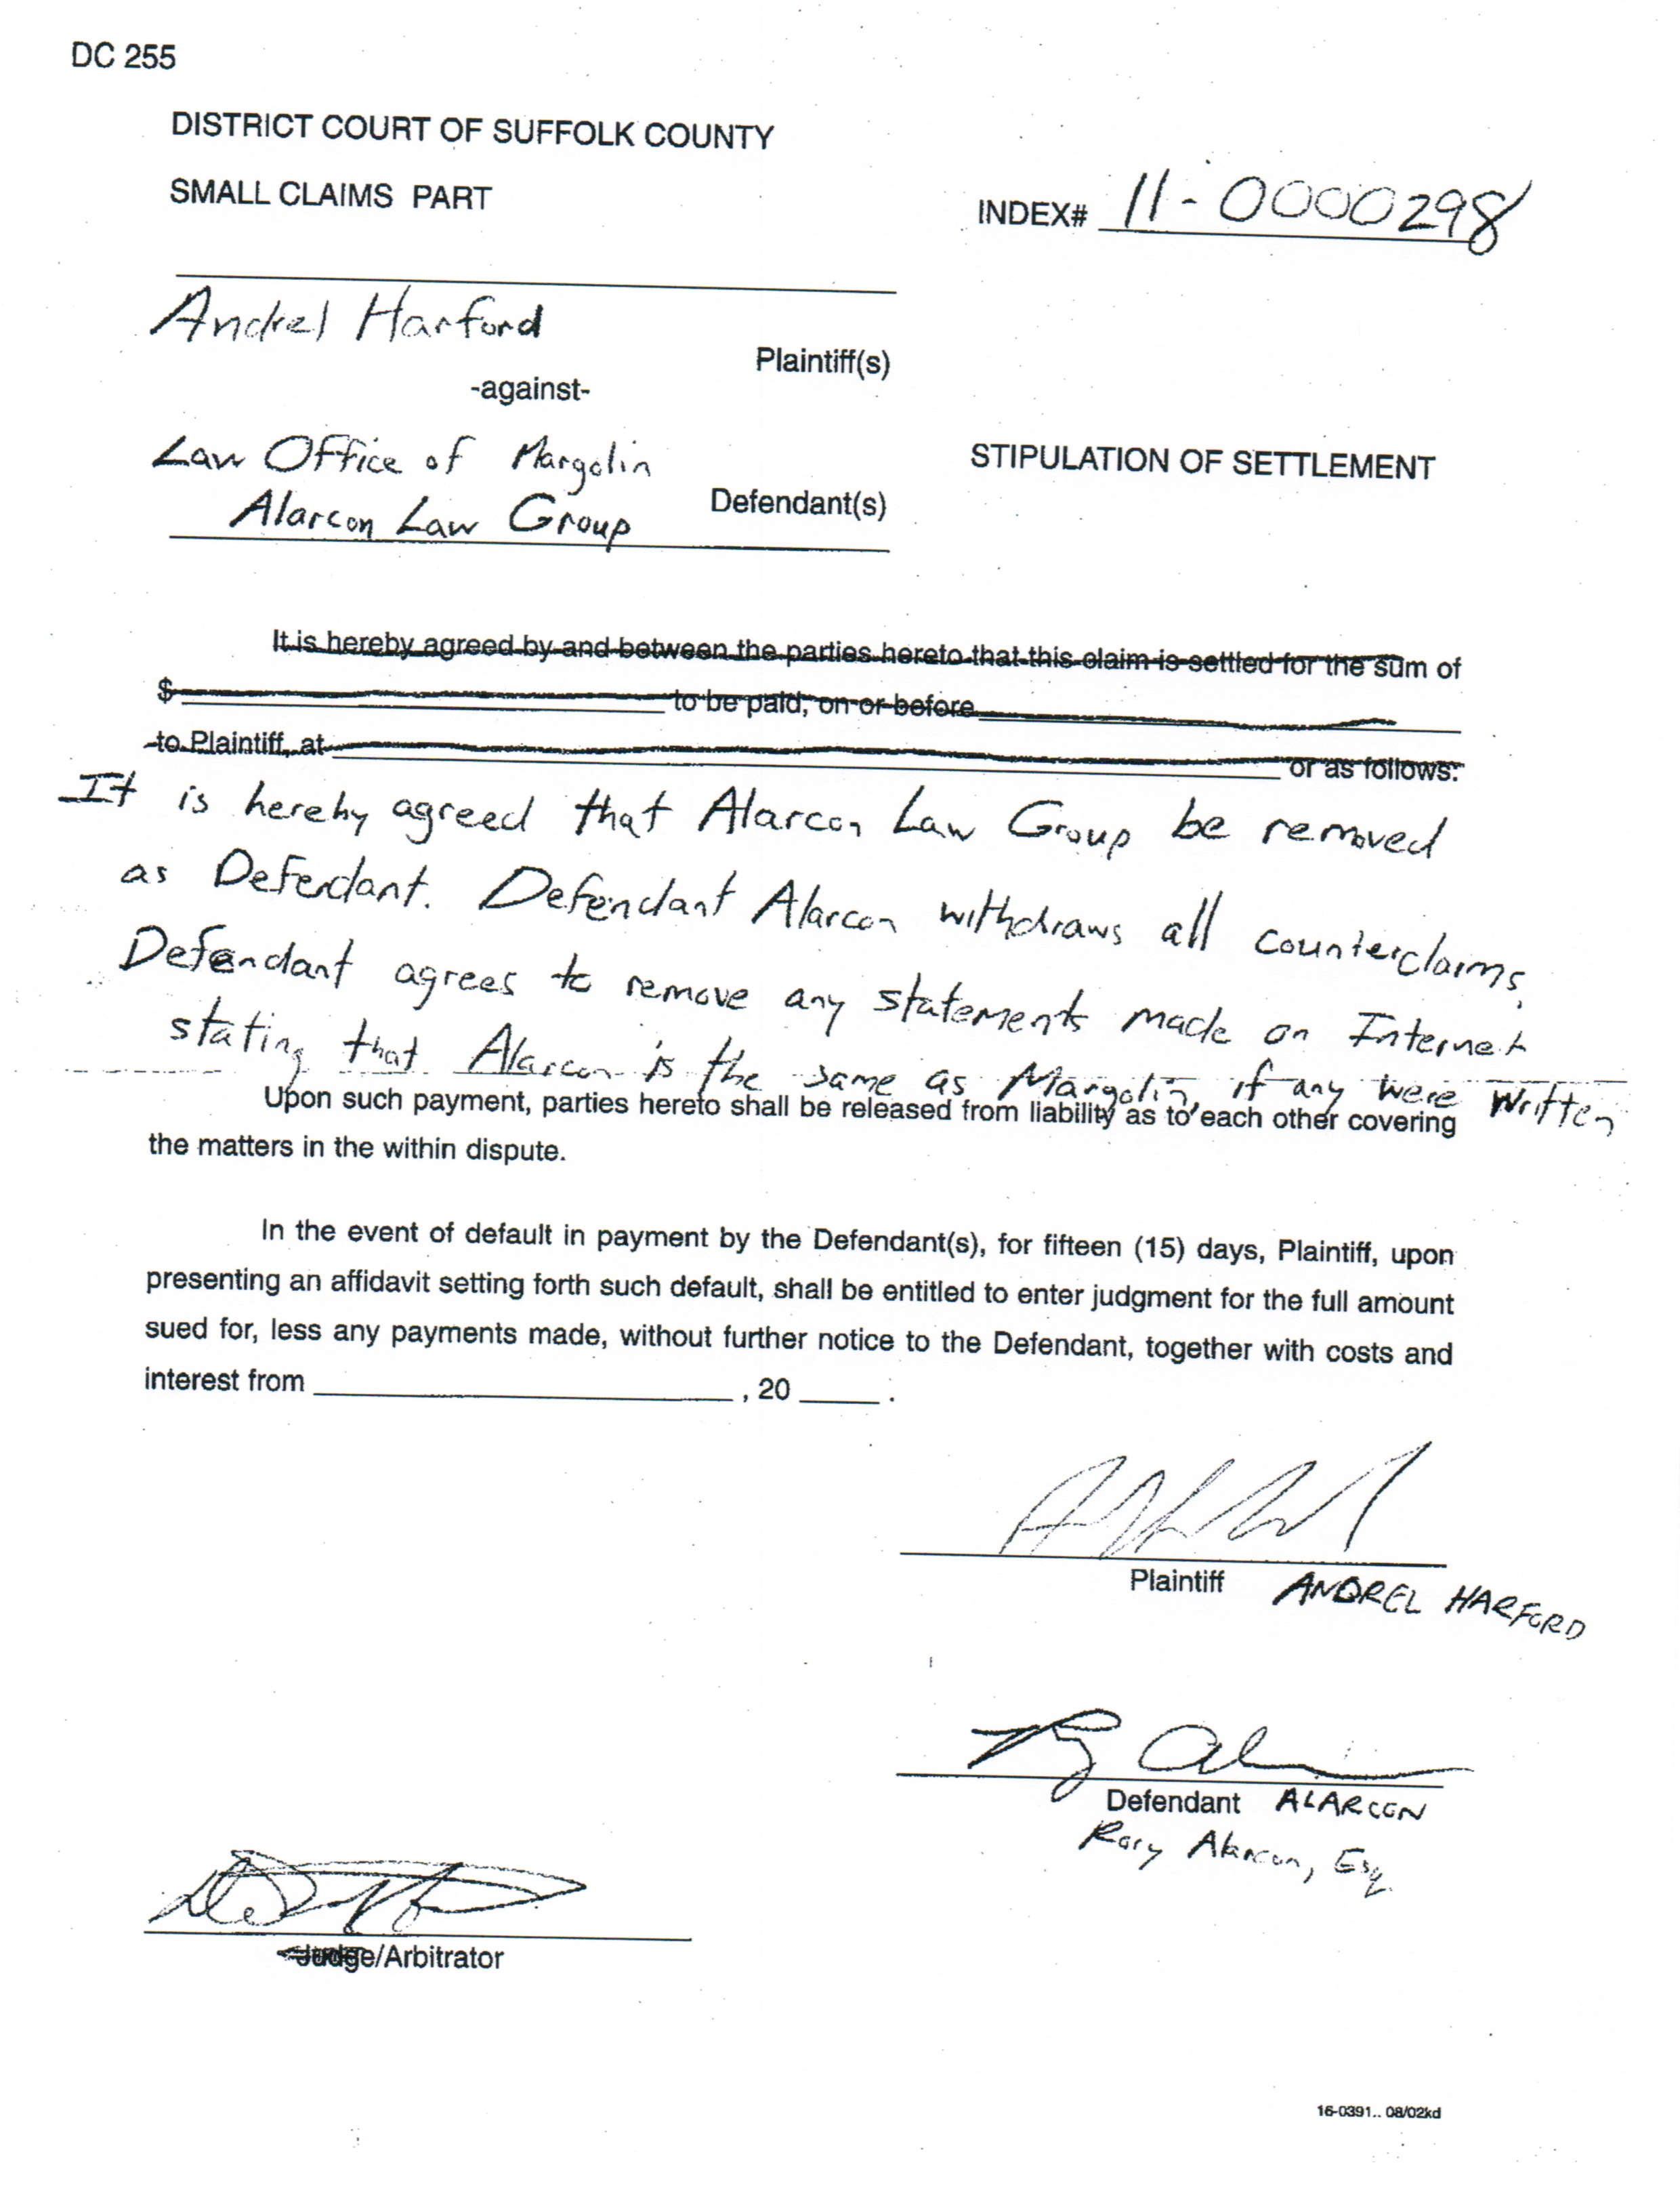 DC 255
DISTRICT COURT OF SUFFOLK COUNTY
SMALL CLAIMS PART
INDEX# 11-0000298
Andrel Harford
Plaintiff(s)
-against-
Law Office of Margolin
Alarcon Law Group
Defendant(s)
STIPULATION OF SETTLEMENT
It is hereby agreed by and between the parties hereto that this claim is settled for the sum of
$ to be paid, on or before
to Plaintiff, at or as follows:
It is hereby agreed that Alarcon Law Group be removed
as Defendant. Defendant Alarcon withdraws all counterclaims.
Defendant agrees to remove any statements made on Internet
stating that Alarcon is the same as Margolin, if any were written
Upon such payment, parties hereto shall be released from liability as to each other covering
the matters in the within dispute.
In the event of default in payment by the Defendant(s), for fifteen (15) days, Plaintiff, upon
presenting an affidavit setting forth such default, shall be entitled to enter judgment for the full amount
sued for, less any payments made, without further notice to the Defendant, together with costs and
interest from , 20 .
Plaintiff ANDREL HARFORD
Defendant ALARCON
Rory Alarcon, Esq.
Judge/Arbitrator
16-0391.. 08/02kd